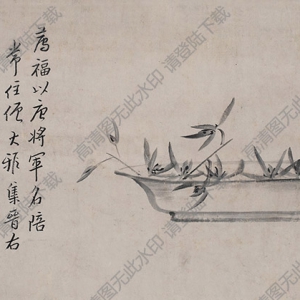 为福以唐将軍名陪
常住僊大雅集晉右
高清图无此水印
请登陆下载
高清图无此水印
请登陆下载
高清图无此水印
请登陆下载